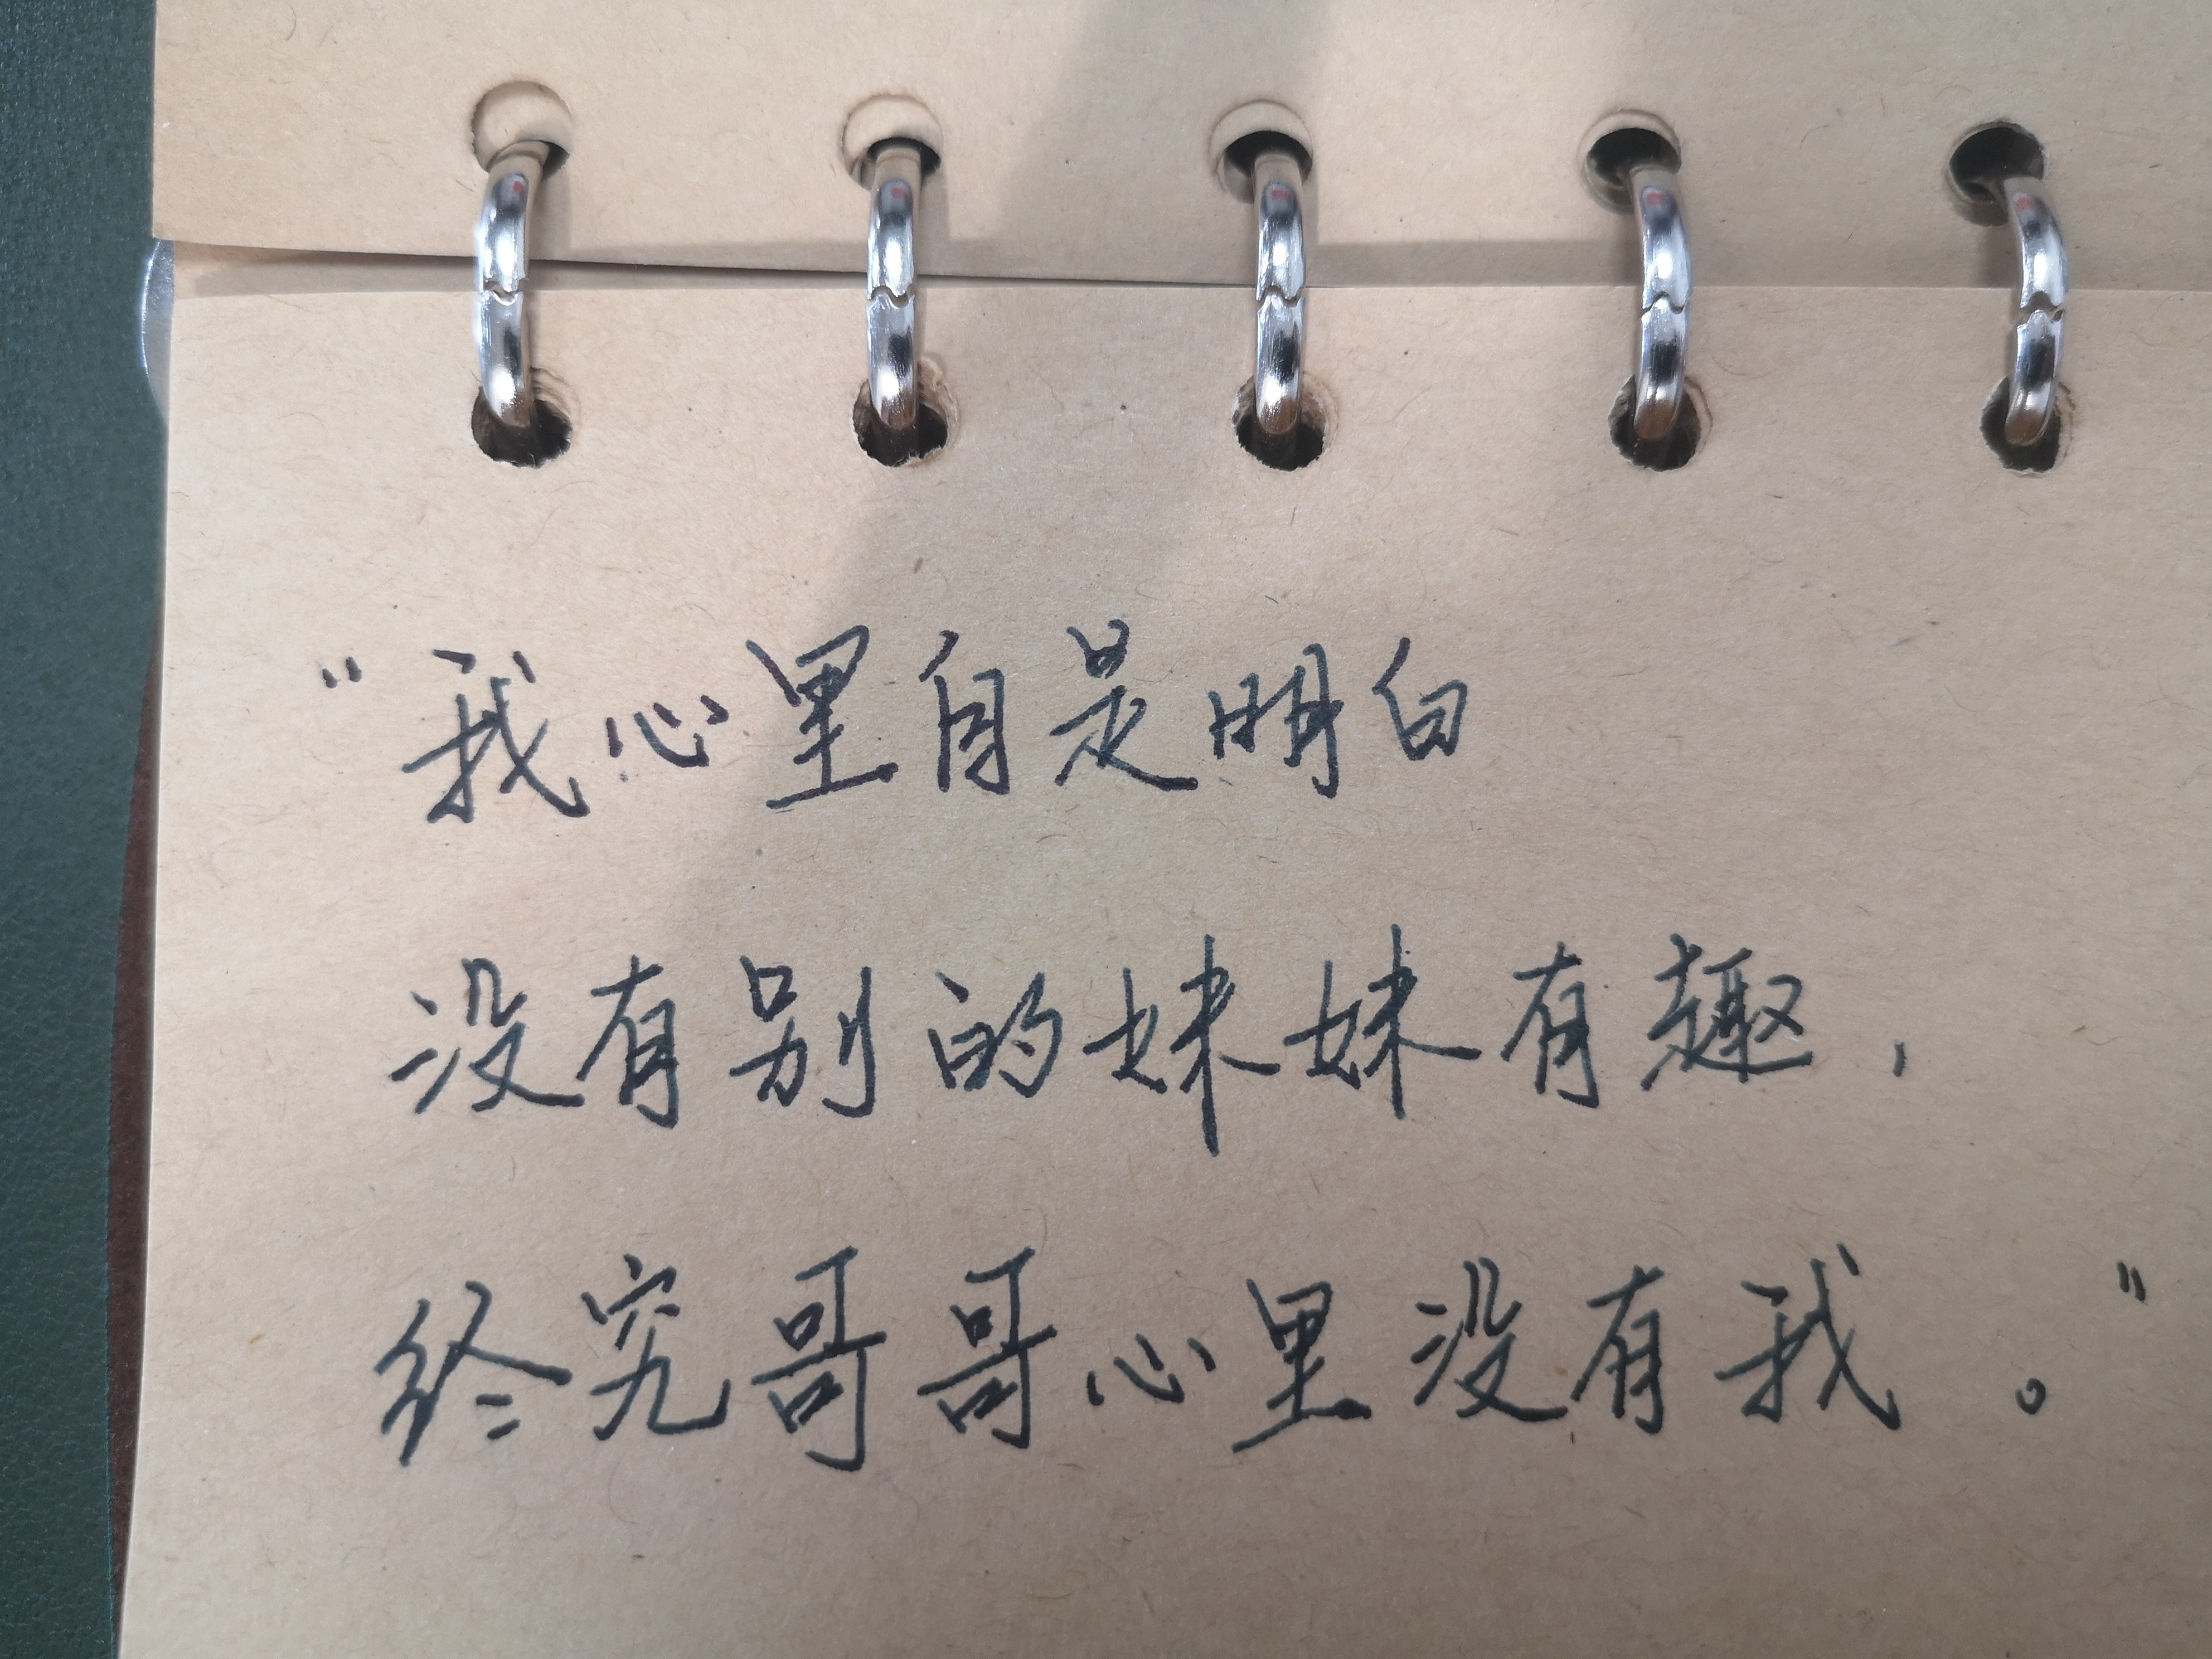 "我心里自是明白
没有别的妹妹有趣，
终究哥哥心里没有我。"